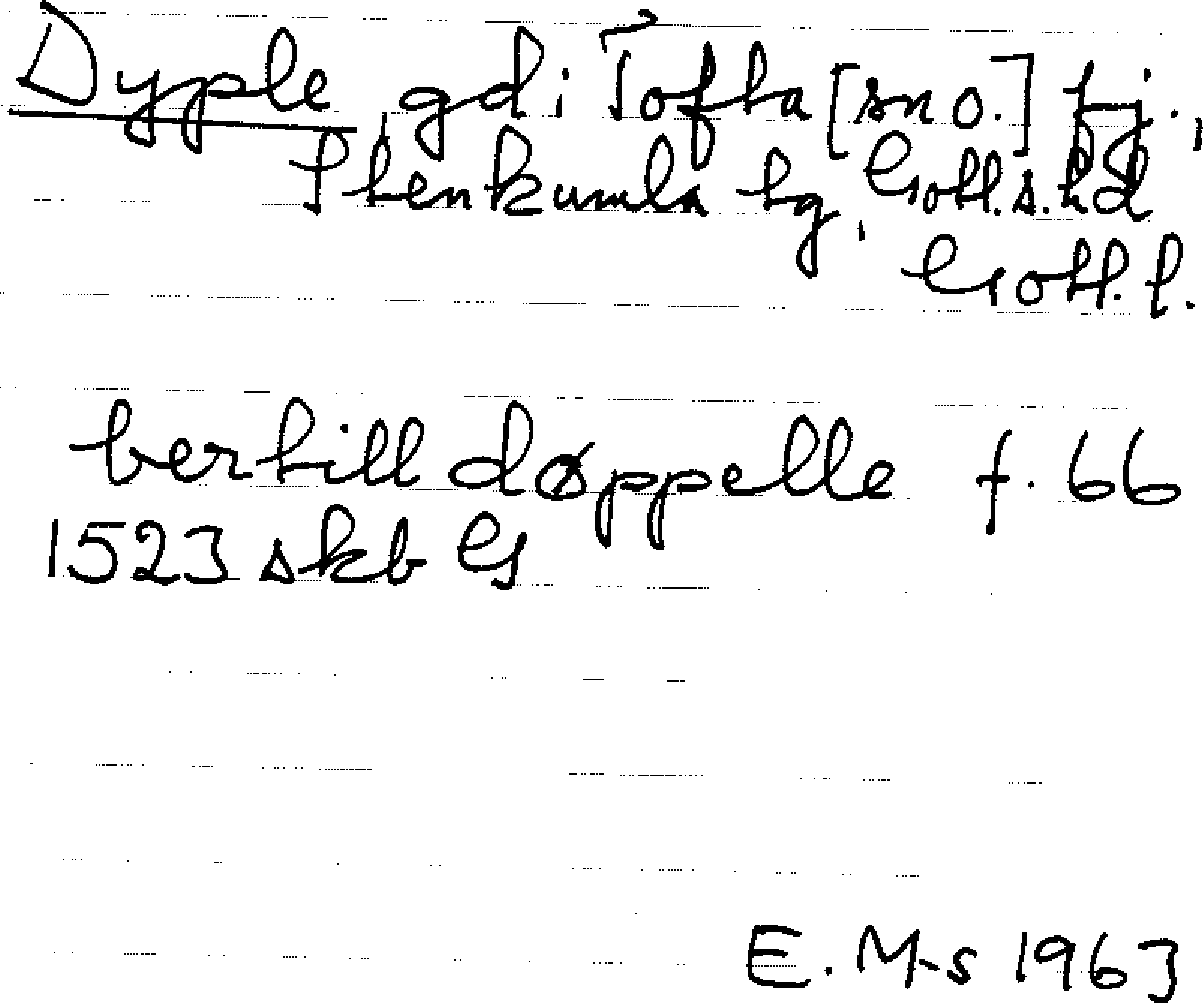 Dyple, gd i Tofta [sn o.] tj.,
Stenkumla tg, Gotl. s. hd
Gotl. l.
bertill døppelle f. 66
1523 skb G
E. M-s 1963